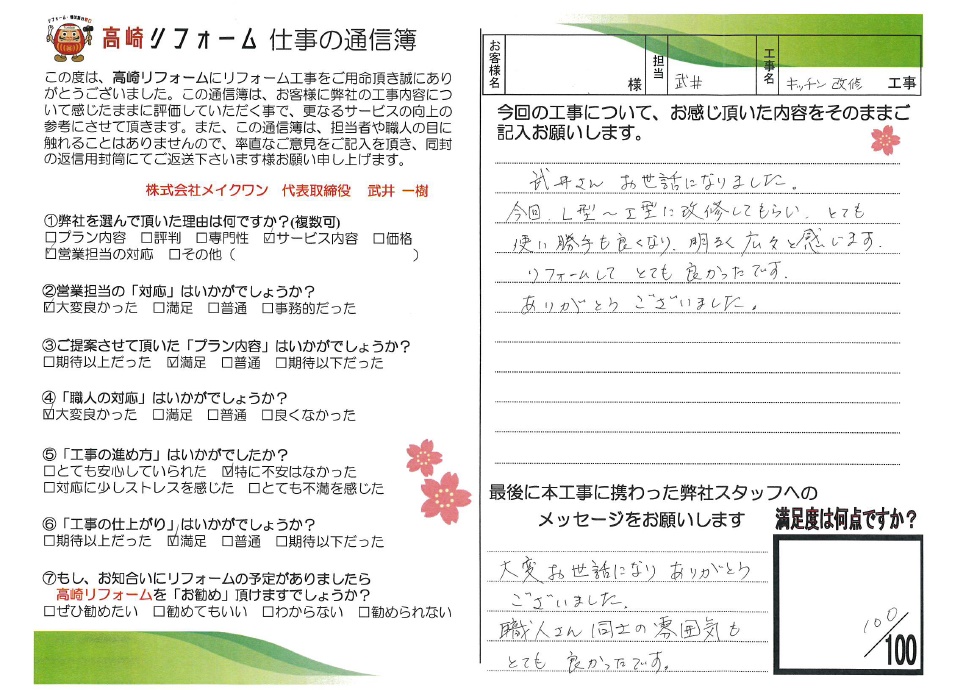 リフォーム・増改築の匠
高崎リフォーム 仕事の通信簿
この度は、高崎リフォームにリフォーム工事をご用命頂き誠にあり
がとうございました。この通信簿は、お客様に弊社の工事内容につ
いて感じたままに評価していただく事で、更なるサービスの向上の
参考にさせて頂きます。また、この通信簿は、担当者や職人の目に
触れることはありませんので、率直なご意見をご記入を頂き、同封
の返信用封筒にてご返送下さいます様お願い申し上げます。
株式会社メイクワン 代表取締役 武井 一樹
①弊社を選んで頂いた理由は何ですか?(複数可)
☐プラン内容 ☐評判 ☐専門性 ☑サービス内容 ☐価格
☑営業担当の対応 ☐その他( )
②営業担当の「対応」はいかがでしょうか?
☑大変良かった ☐満足 ☐普通 ☐事務的だった
③ご提案させて頂いた「プラン内容」はいかがでしょうか?
☐期待以上だった ☑満足 ☐普通 ☐期待以下だった
④「職人の対応」はいかがでしょうか?
☑大変良かった ☐満足 ☐普通 ☐良くなかった
⑤「工事の進め方」はいかがでしたか?
☐とても安心していられた ☑特に不安はなかった
☐対応に少しストレスを感じた ☐とても不満を感じた
⑥「工事の仕上がり」はいかがでしょうか?
☐期待以上だった ☑満足 ☐普通 ☐期待以下だった
⑦もし、お知合いにリフォームの予定がありましたら
高崎リフォームを「お勧め」頂けますでしょうか?
☐ぜひ勧めたい ☐勧めてもいい ☐わからない ☐勧められない
お客様名 様 担当 武井 工事名 キッチン改修 工事
今回の工事について、お感じ頂いた内容をそのままご
記入お願いします。
武井さん お世話になりました。
今回 L型〜I型に改修してもらい、とても
使い勝手も良くなり、明るく広々と感じます。
リフォームして とても 良かったです。
ありがとう ございました。
最後に本工事に携わった弊社スタッフへの
メッセージをお願いします
大変お世話になり ありがとう
ございました。
職人さん同士の雰囲気も
とても 良かったです。
満足度は何点ですか?
100/100